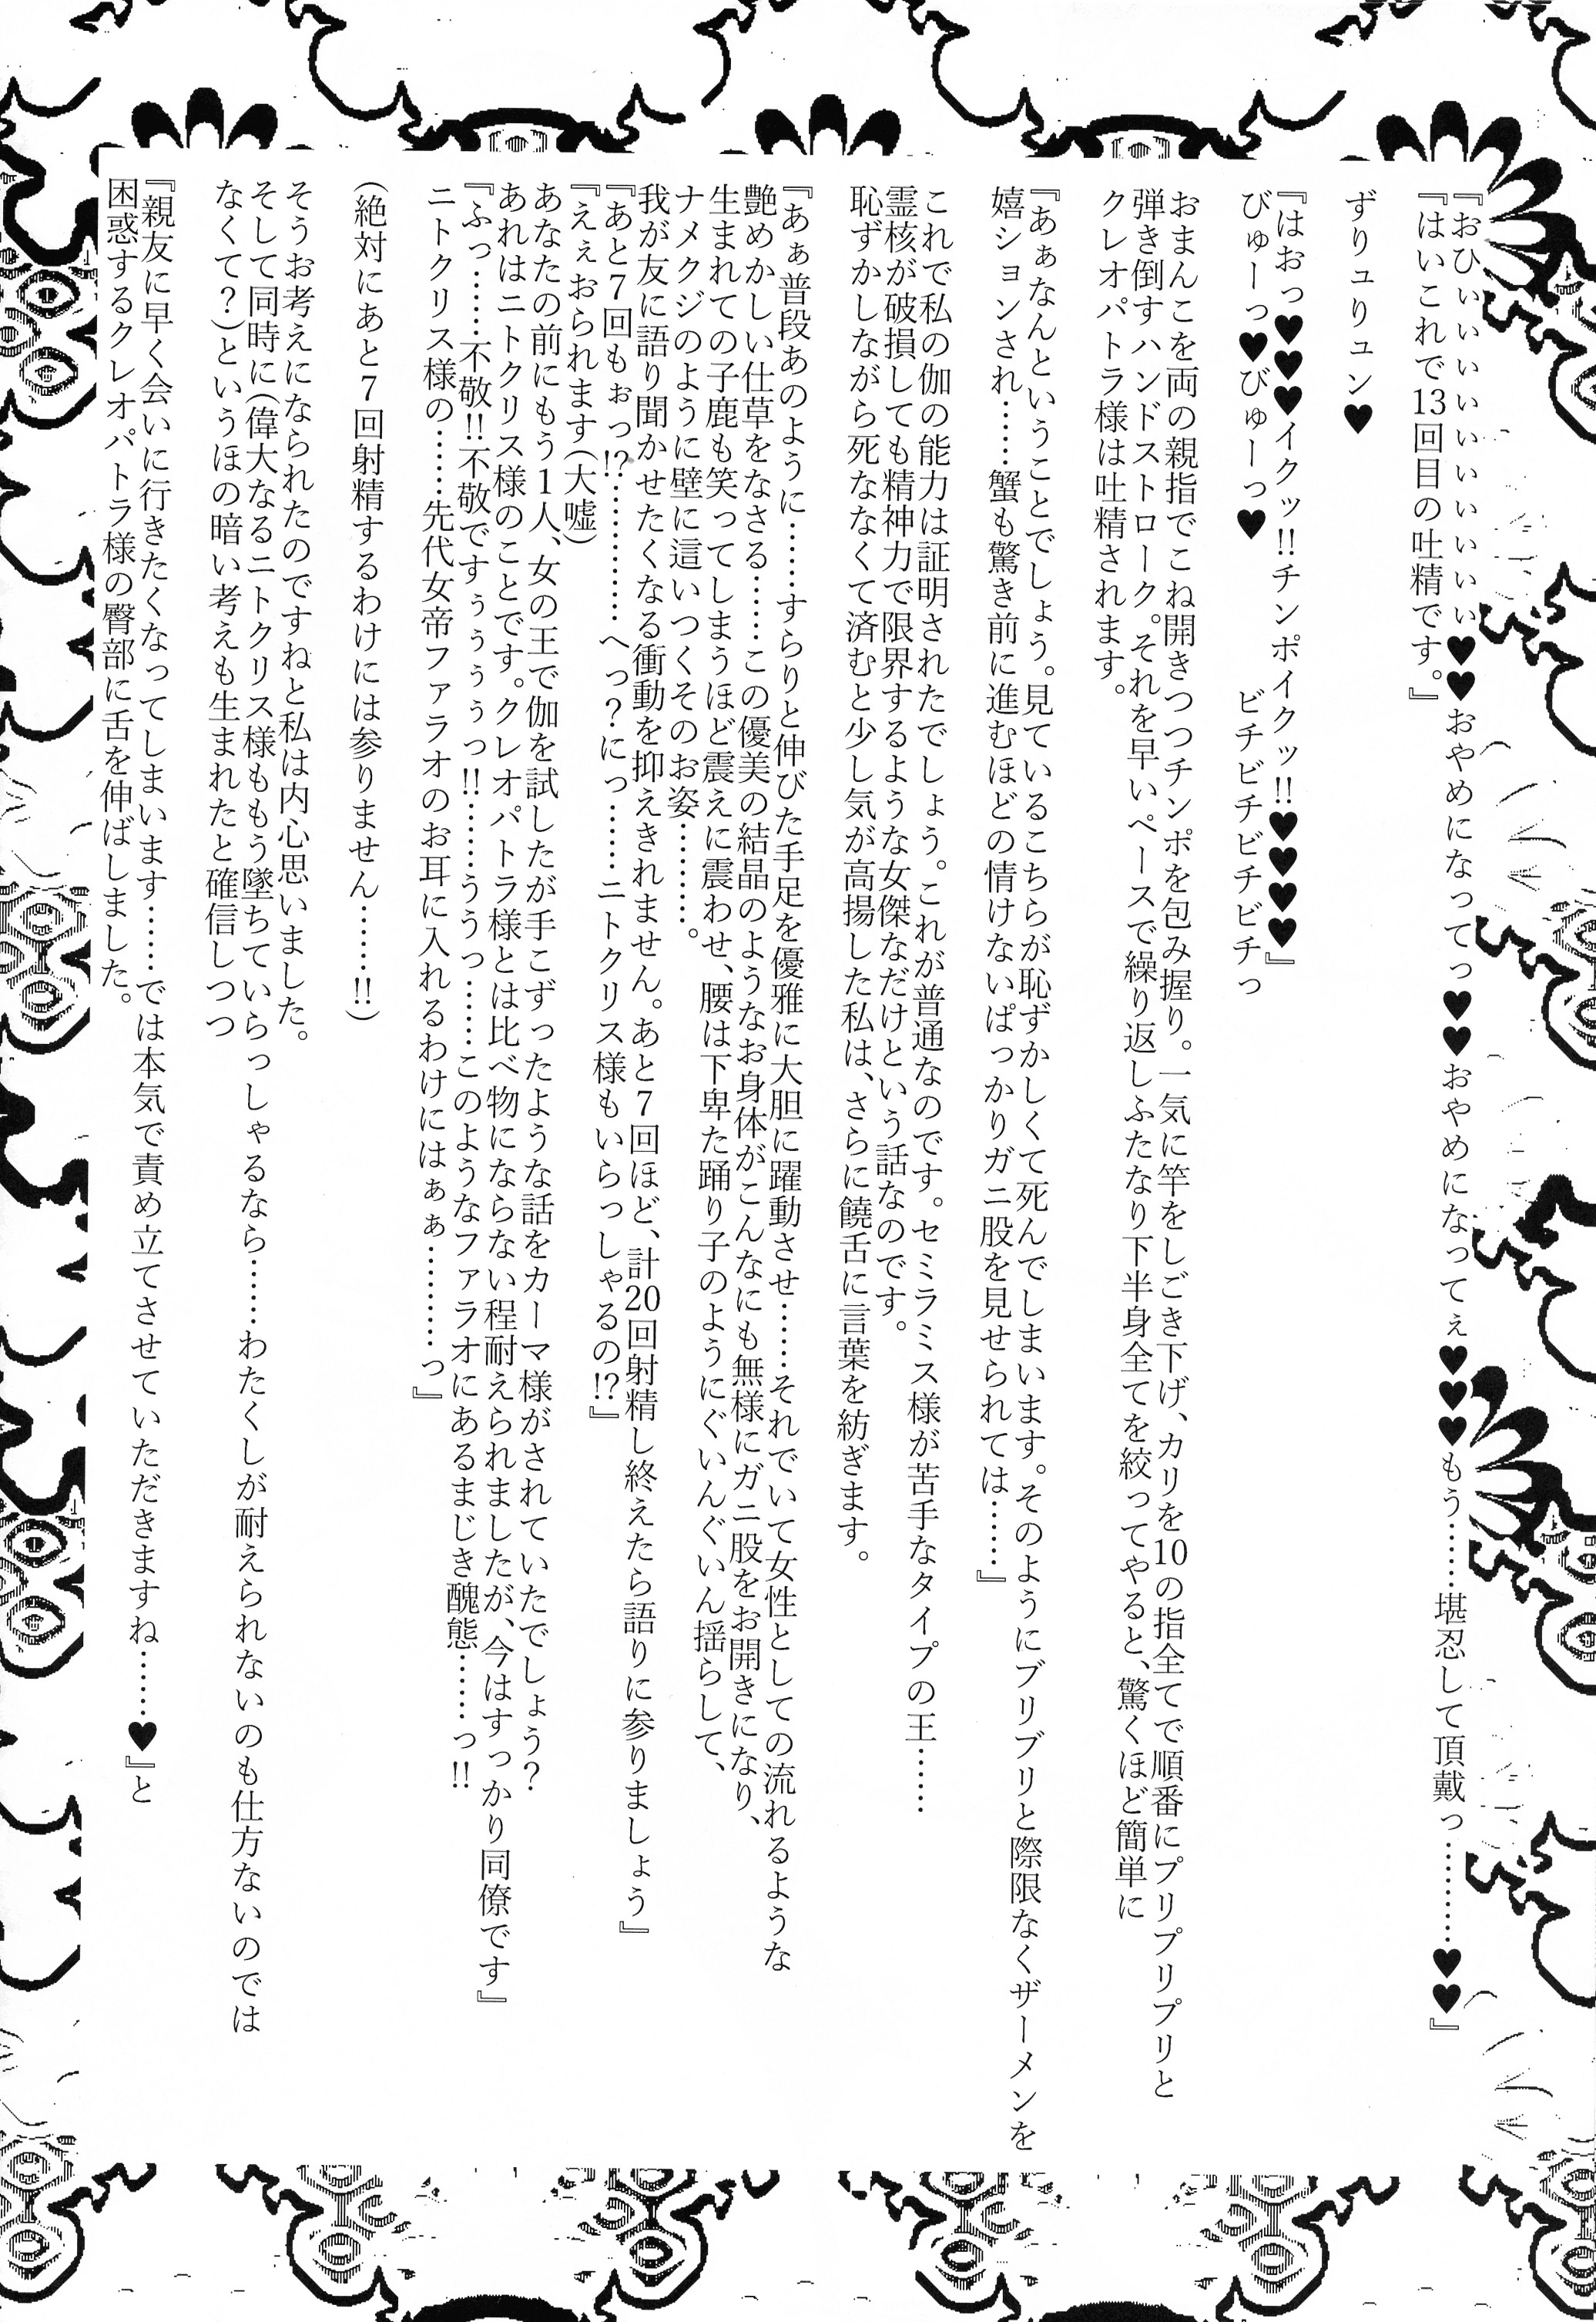 『おひぃぃぃぃぃぃぃぃぃ♥♥おやめになってっ♥♥おやめになってぇ♥♥♥もう……堪忍して頂戴っ………♥♥』
『はいこれで13回目の吐精です。』
ずりュりュン♥
『はおっ♥♥♥イクッ!!チンポイクッ!!♥♥♥♥』
びゅーっ♥びゅーっ♥　　　ビチビチビチビチっ
おまんこを両の親指でこね開きつつチンポを包み握り。一気に竿をしごき下げ、カリを10の指全てで順番にプリプリプリと
弾き倒すハンドストローク。それを早いペースで繰り返しふたなり下半身全てを絞ってやると、驚くほど簡単に
クレオパトラ様は吐精されます。
『あぁなんということでしょう。見ているこちらが恥ずかしくて死んでしまいます。そのようにブリブリと際限なくザーメンを
嬉ションされ……蟹も驚き前に進むほどの情けないぱっかりガニ股を見せられては……』
これで私の伽の能力は証明されたでしょう。これが普通なのです。セミラミス様が苦手なタイプの王……
霊核が破損しても精神力で限界するような女傑なだけという話なのです。
恥ずかしながら死ななくて済むと少し気が高揚した私は、さらに饒舌に言葉を紡ぎます。
『あぁ普段あのように……すらりと伸びた手足を優雅に大胆に躍動させ……それでいて女性としての流れるような
艶めかしい仕草をなさる……この優美の結晶のようなお身体がこんなにも無様にガニ股をお開きになり、
生まれての子鹿も笑ってしまうほど震えに震わせ、腰は下卑た踊り子のようにぐいんぐいん揺らして、
ナメクジのように壁に這いつくそのお姿………。
我が友に語り聞かせたくなる衝動を抑えきれません。あと7回ほど、計20回射精し終えたら語りに参りましょう』
『あと7回もぉっ!?…………へっ?にっ……ニトクリス様もいらっしゃるの!?』
『えぇおられます(大嘘)
あなたの前にもう1人、女の王で伽を試したが手こずったような話をカーマ様がされていたでしょう?
あれはニトクリス様のことです。クレオパトラ様とは比べ物にならない程耐えられましたが、今はすっかり同僚です』
『ふっ……不敬!!不敬ですぅぅぅっ!!……ううっ……このようなファラオにあるまじき醜態……っ!!
ニトクリス様の……先代女帝ファラオのお耳に入れるわけにはぁぁ………っ』
(絶対にあと7回射精するわけには参りません……!!)
そうお考えになられたのですねと私は内心思いました。
そして同時に(偉大なるニトクリス様ももう墜ちていらっしゃるなら……わたくしが耐えられないのも仕方ないのでは
なくて?)というほの暗い考えも生まれたと確信しつつ
『親友に早く会いに行きたくなってしまいます……では本気で責め立てさせていただきますね……♥』と
困惑するクレオパトラ様の臀部に舌を伸ばしました。